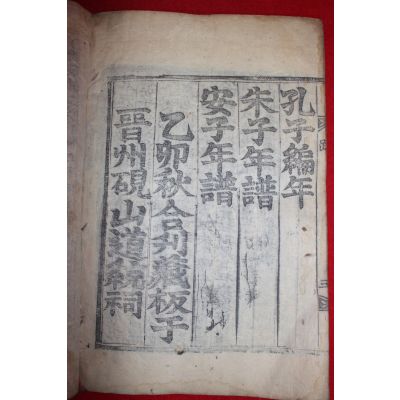 孔子編年
朱子年譜
安子年譜
乙卯秋合刊藏板于
晋州硯山道統祠